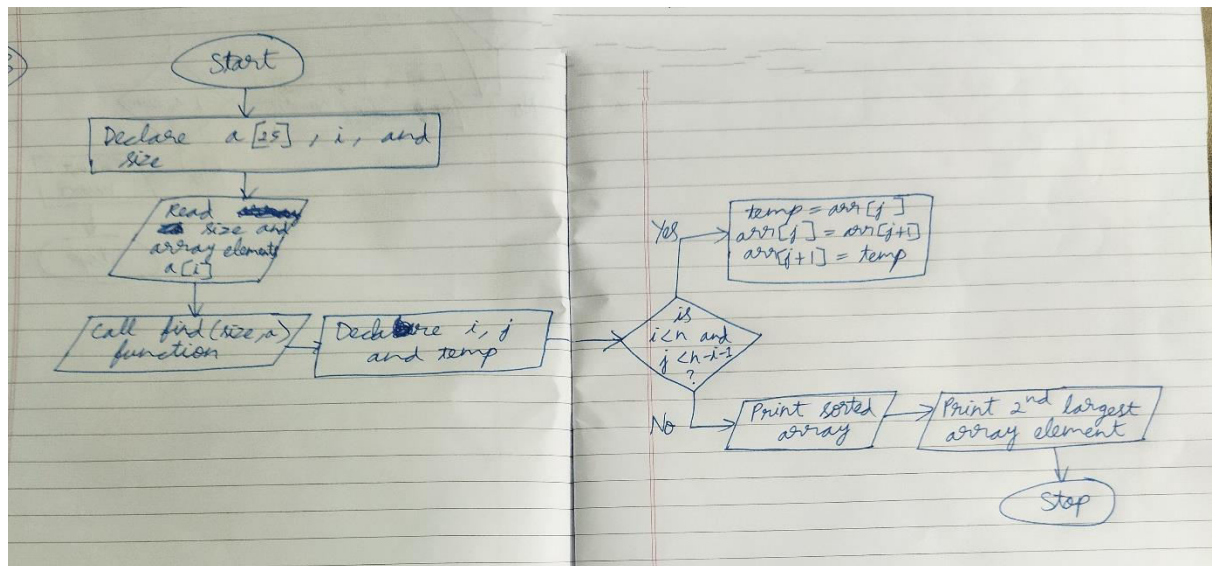 Start
Declare a[25], i, and
size
Read
size and
array elements
a[i]
Call find(size,a)
function
Declare i, j
and temp
is
i<n and
j<n-i-1
?
Yes
temp = arr[j]
arr[j] = arr[j+1]
arr[j+1] = temp
No
Print sorted
array
Print 2nd largest
array element
Stop